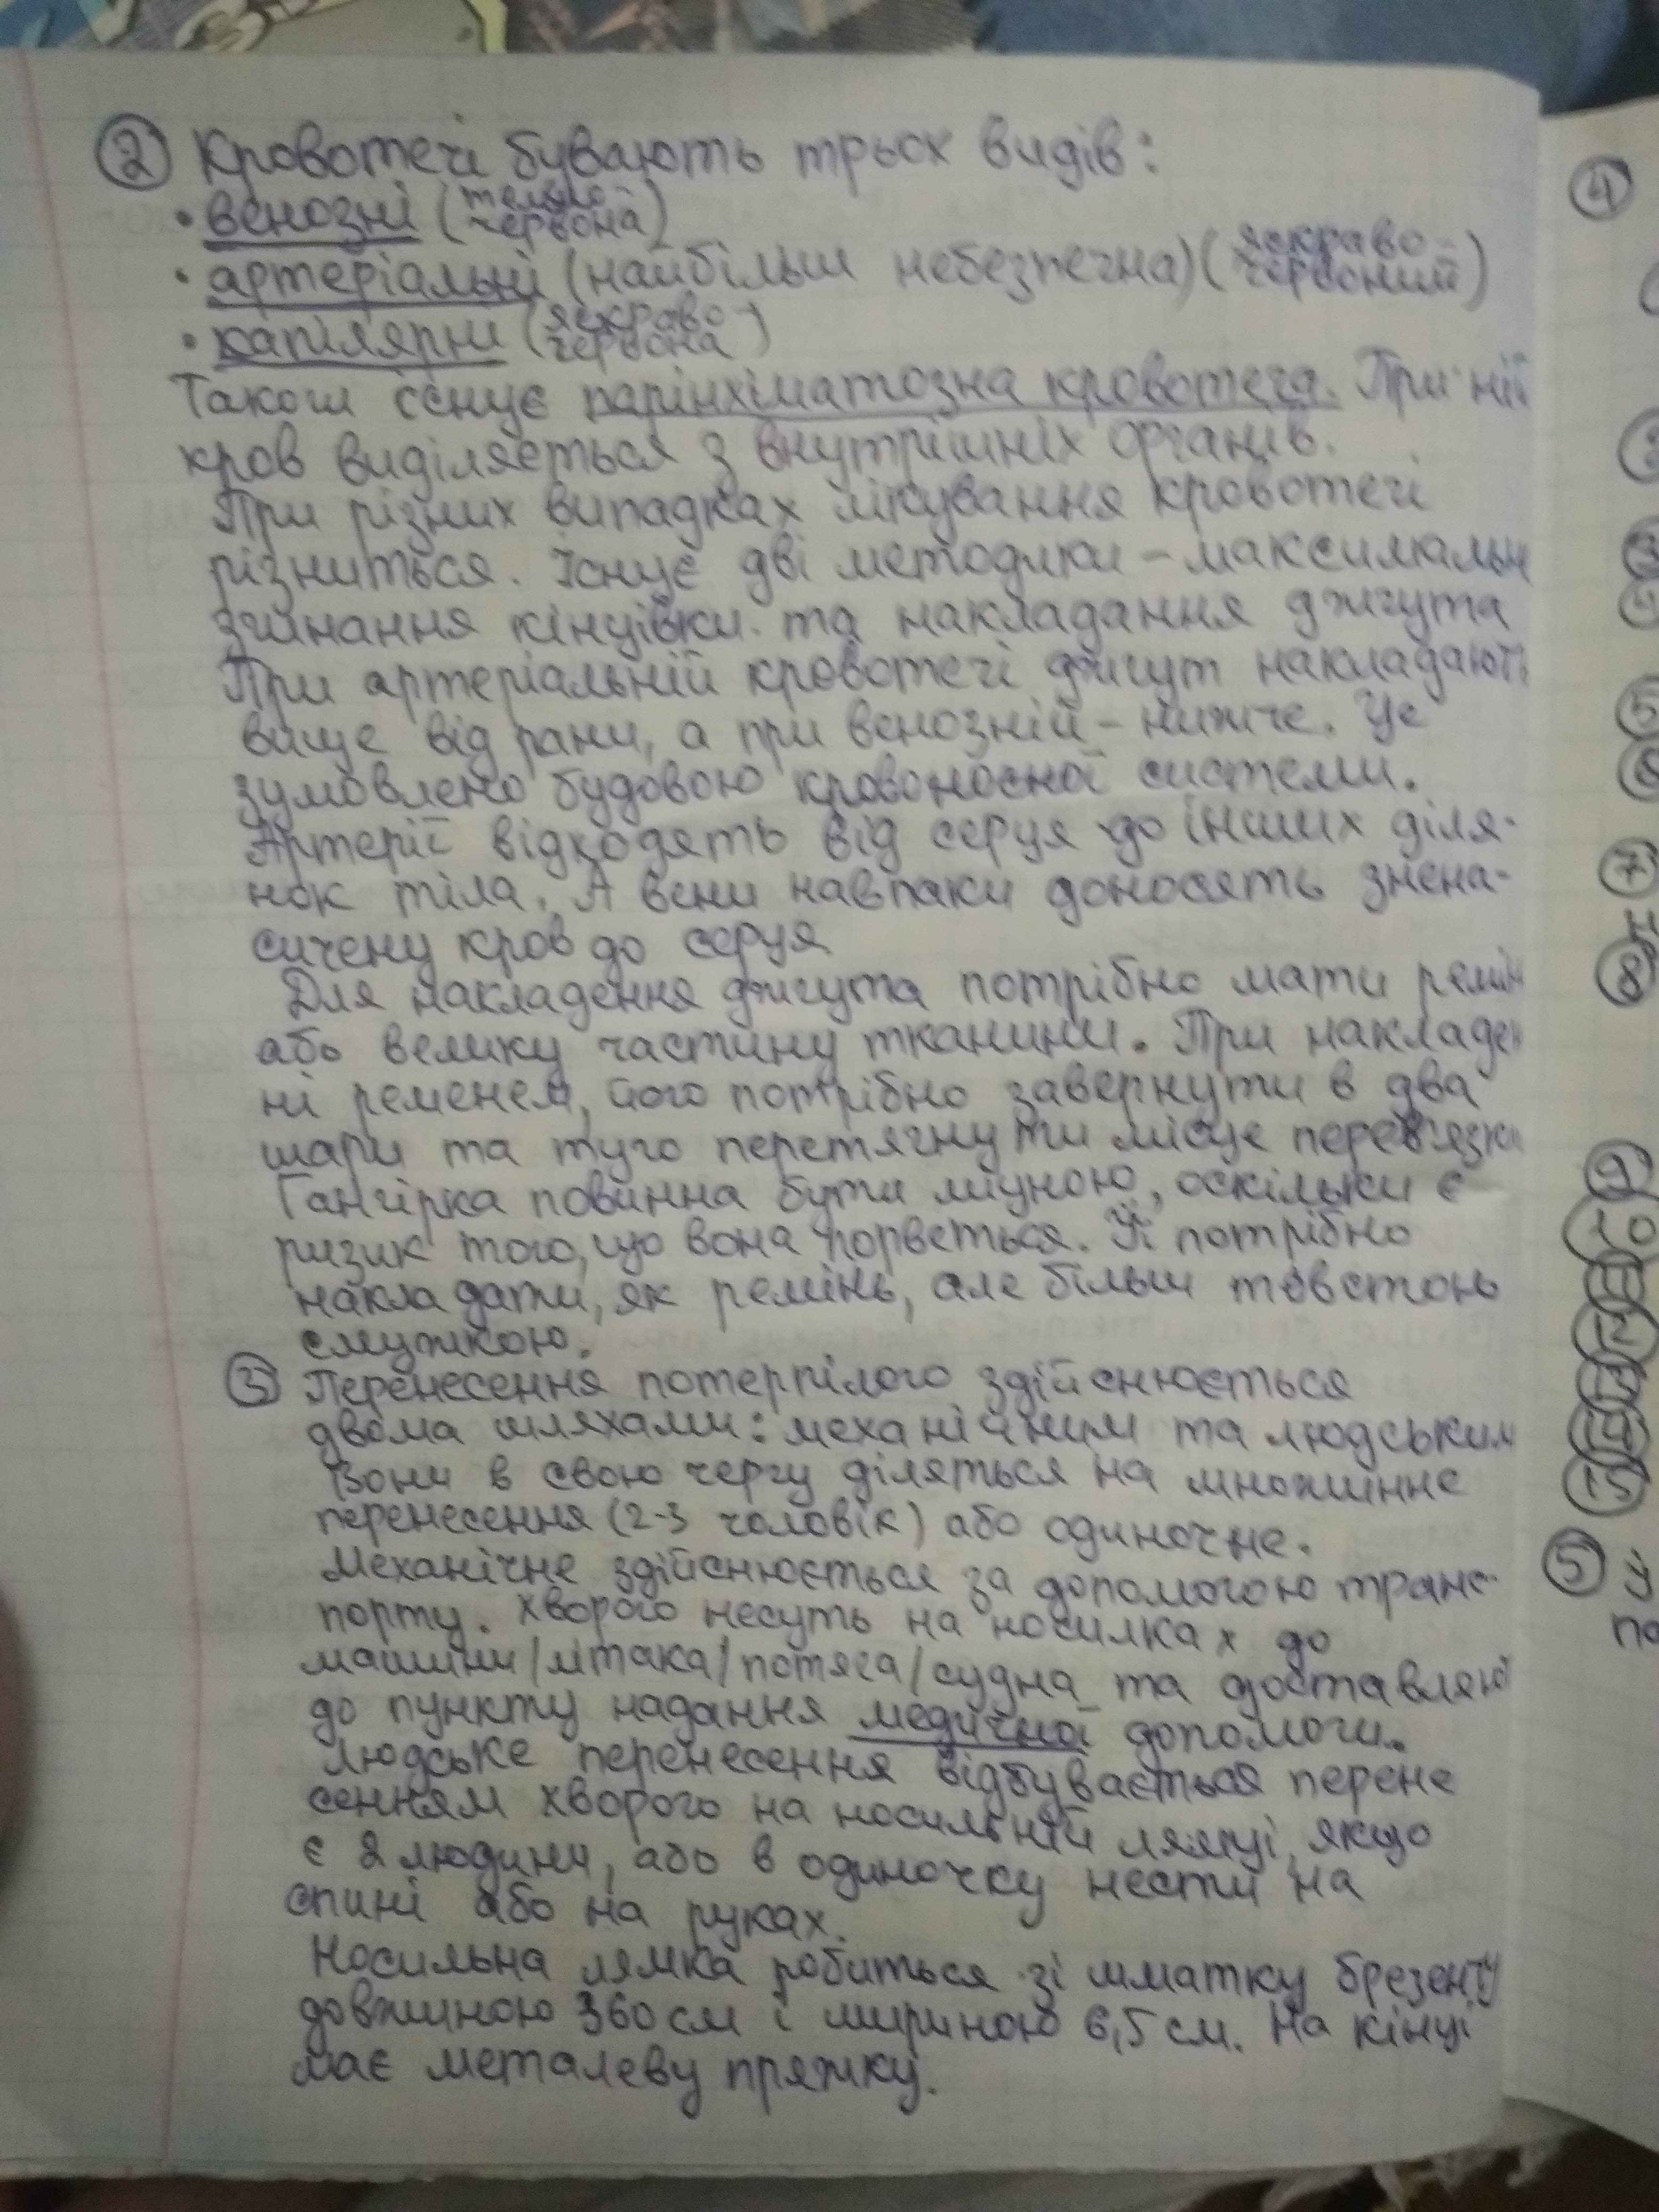 ② Кровотечі бувають трьох видів:
• венозні (темно-червона)
• артеріальні (найбільш небезпечна) (яскраво-червоний)
• капілярні (яскраво-червона)
Також існує парінхіматозна кровотеча. При ній
кров виділяється з внутрішніх органів.
При різних випадках лікування кровотечі
різниться. Існує дві методики – максимальн
згинання кінцівки та накладання джгута
При артеріальній кровотечі джгут накладають
вище від рани, а при венозній – нижче. Це
зумовлено будовою кровоносної системи.
Артерії відходять від серця до інших діля-
нок тіла. А вени навпаки доносять знена-
сичену кров до серця
Для накладення джгута потрібно мати ремінь
або велику частину тканини. При накладен
ні ременем, його потрібно завернути в два
шари та туго перетягнути місце перев'язки
Ганчірка повинна бути міцною, оскільки є
ризик того, що вона порветься. Її потрібно
накладати, як ремінь, але більш товстою
смужкою.
③ Перенесення потерпілого здійснюється
двома шляхами: механічним та людським
Вони в свою чергу діляться на множинне
перенесення (2-3 чоловік) або одиночне.
Механічне здійснюється за допомогою транс-
порту. Хворого несуть на носилках до
машини/літака/потяга/судна та доставляють
до пункту надання медичної допомоги.
Людське перенесення відбувається перене
сенням хворого на носильній лямці, якщо
є 2 людини, або в одиночку нести на
спині або на руках.
Носильна лямка робиться зі шматку брезенту
довжиною 360 см і шириною 6,5 см. На кінці
має металеву пряжку.
④
③
5
6
⑦
н
⑧
⑨
10
11
12
13
14
15
⑤ У
по